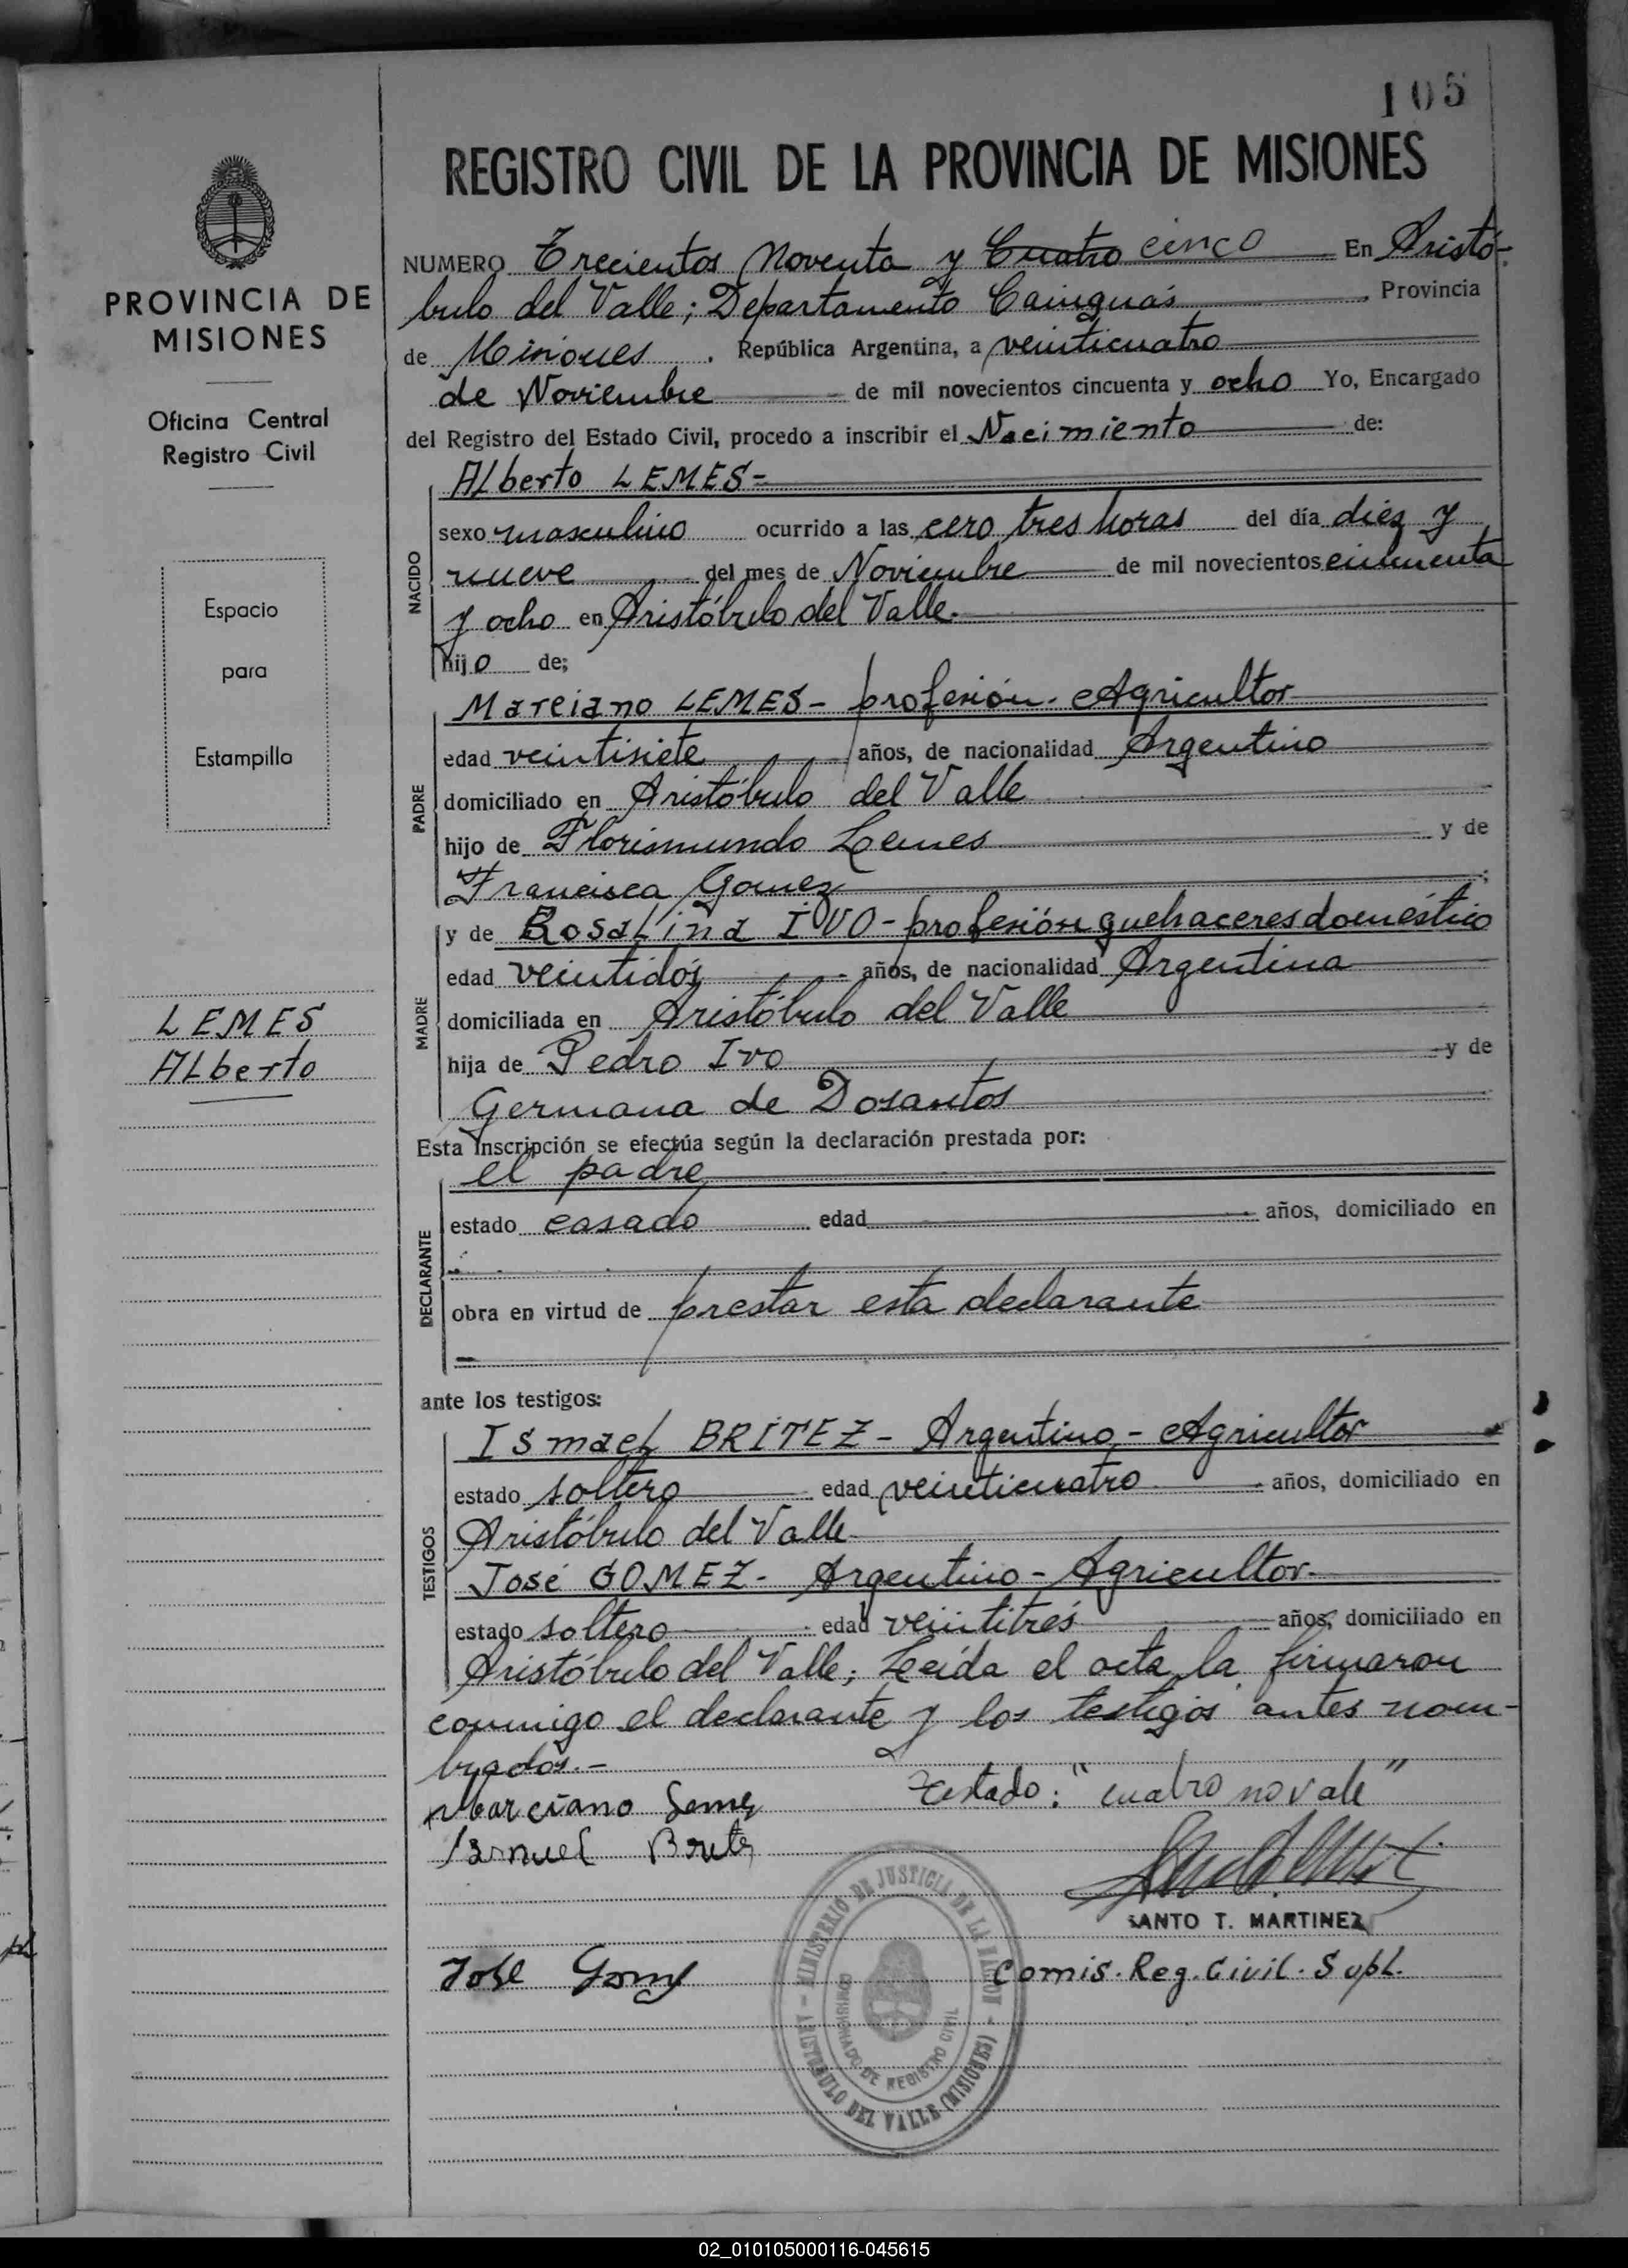 105
REGISTRO CIVIL DE LA PROVINCIA DE MISIONES
PROVINCIA DE
MISIONES
Oficina Central
Registro Civil
Espacio
para
Estampilla
LEMES
Alberto
NUMERO Trecientos Noventa y Cuatro cinco En Aristó-
bulo del Valle; Departamento Cainguás. Provincia
de Misiones. República Argentina, a veinticuatro
de Noviembre de mil novecientos cincuenta y ocho Yo, Encargado
del Registro del Estado Civil, procedo a inscribir el Nacimiento de:
NACIDO
Alberto LEMES=
sexo masculino ocurrido a las cero tres horas del día diez y
nueve del mes de Noviembre de mil novecientos cincuenta
y ocho en Aristóbulo del Valle.
hijo de;
PADRE
Marciano LEMES- profesión. Agricultor
edad veintisiete años, de nacionalidad Argentino
domiciliado en Aristóbulo del Valle
hijo de Florismundo Lemes y de
Francisca Gomez;
MADRE
y de Rosalina IVO - profesión quehaceres doméstico
edad veintidós años, de nacionalidad Argentina
domiciliada en Aristóbulo del Valle
hija de Pedro Ivo y de
Germana de Dosantos
Esta Inscripción se efectúa según la declaración prestada por:
DECLARANTE
el padre
estado casado edad años, domiciliado en
obra en virtud de prestar esta declarante
ante los testigos:
TESTIGOS
Ismael BRITEZ - Argentino - Agricultor
estado soltero edad veinticuatro años, domiciliado en
Aristóbulo del Valle
José GOMEZ - Argentino - Agricultor.
estado soltero edad veintitrés años, domiciliado en
Aristóbulo del Valle; Leída el acta, la firmaron
conmigo el declarante y los testigos antes nom-
brados.-
Testado: "cuatro no vale"
Marciano Lemes
Ismuel Britz
SANTO T. MARTINEZ
Jose Gomz
Comis. Reg. Civil. Supl.
MINISTERIO DE JUSTICIA DE LA NACION - ARISTOBULO DEL VALLE (MISIONES) -
ENCARGADO DE REGISTRO CIVIL
02_010105000116-045615